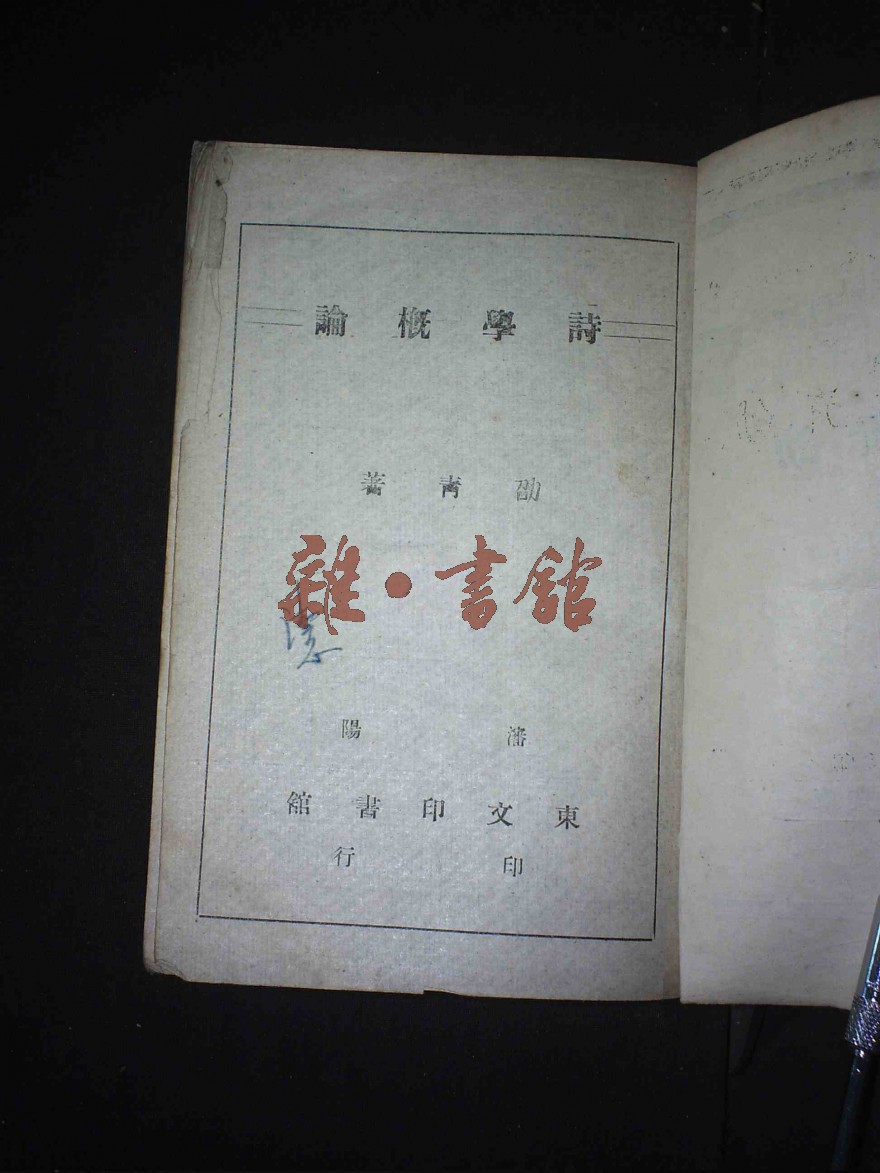 詩學概論
劭青著
雜·書館
瀋陽
東文印書館
印行